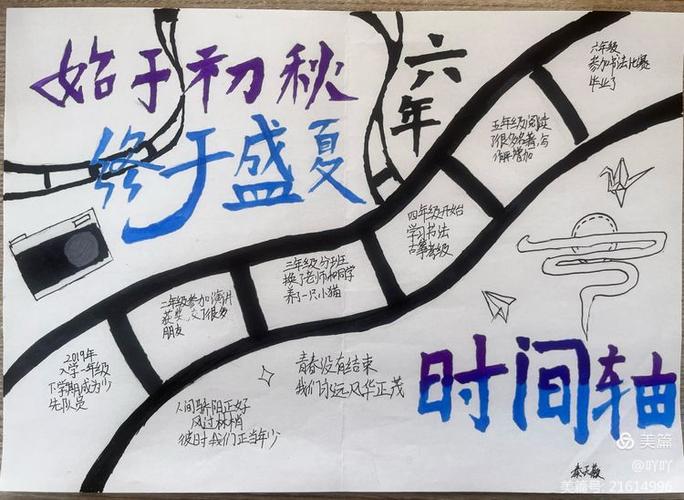 始于初秋
终于盛夏
六年
六年级
参加书法比赛
毕业了
五年级阅读
了很多名著,写
作有增加
四年级开始
学习书法
古筝考级
三年级分班
换了老师和同学
养了一只小猫
二年级参加演片
获奖,交了很多
朋友
2019年
入学一年级
下学期成为少
先队员
青春没有结束
我们永远风华正茂
人间骄阳正好
风过林梢
彼时我们正当年少
时间轴
美篇
@吖吖
美篇号 21614996